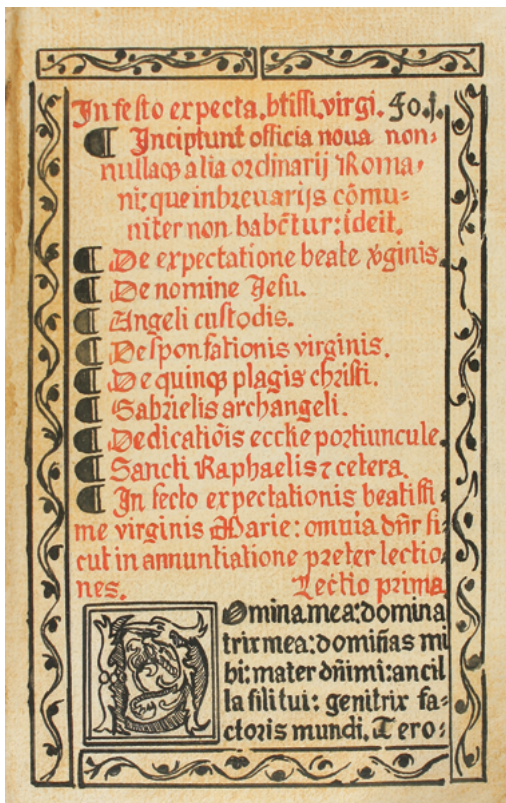 In festo expecta. btissi. virgi. Fo. j.
¶ Incipiunt officia noua non-
nullaqꝫ alia ordinarij Roma,
ni: que in breuarijs cōmu-
niter non habētur: id eit.
¶ De expectatione beate v̓ginis.
¶ De nomine Jesu.
¶ Angeli custodis.
¶ Desponsationis virginis.
¶ De quinqꝫ plagis christi.
¶ Gabrielis archangeli.
¶ Dedicatiōis ecclie portiuncule.
¶ Sancti Raphaelis ⁊ cetera.
¶ In fecto expectationis beatissi-
me virginis Marie: omnia dn̄r si-
cut in annuntiatione preter lectio-
nes. Lectio prima
Domina mea: domina
trix mea: domiñas mi
hi: mater dñi mi: ancil
la filii tui: genitrix fa-
ctoris mundi. Te ro-